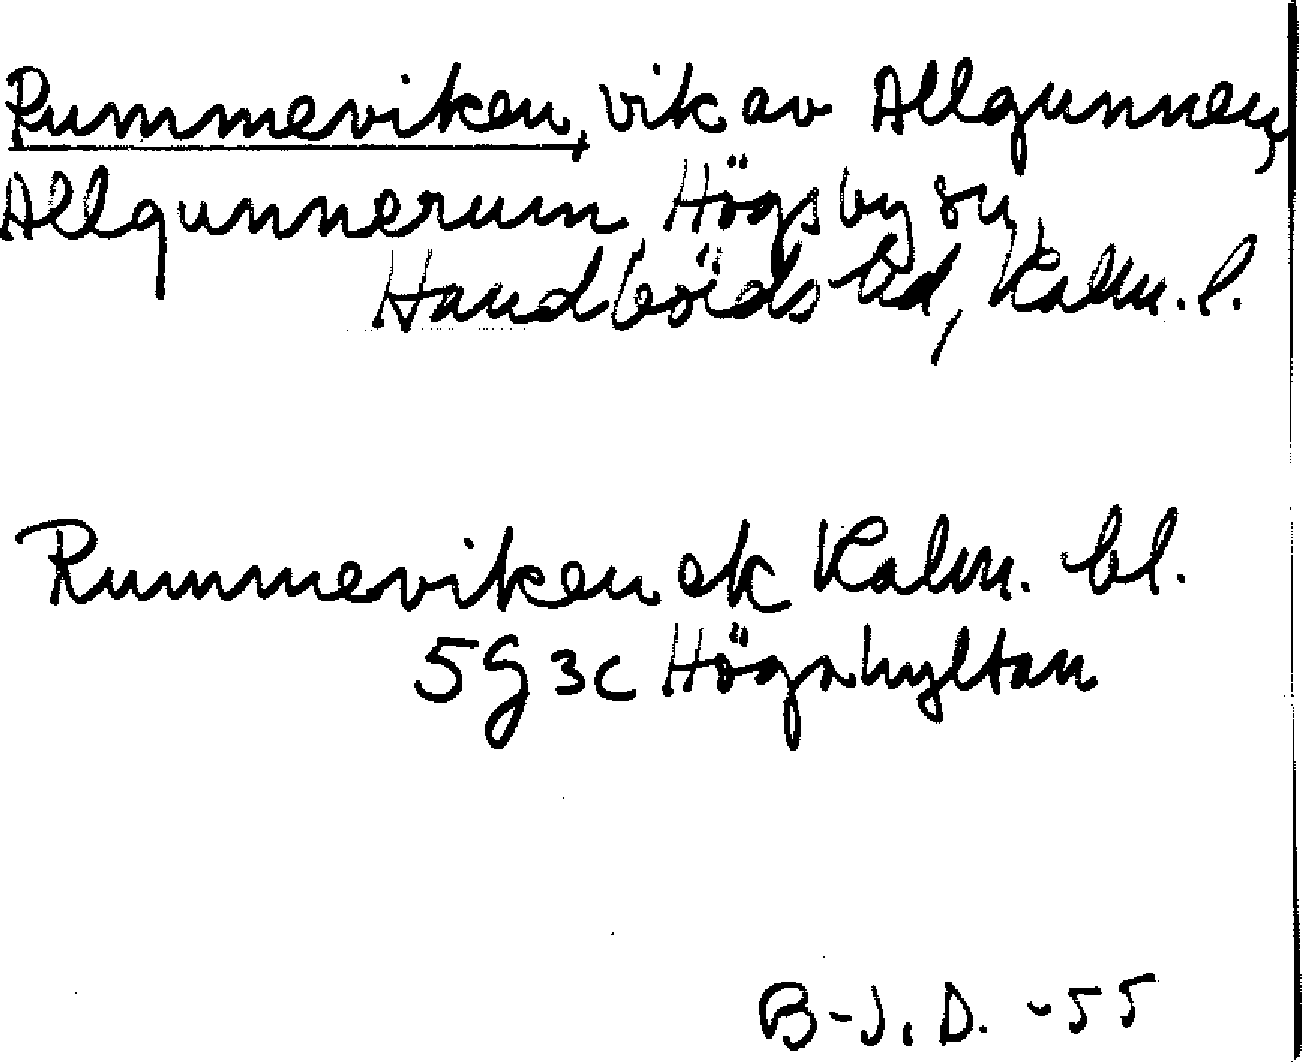 Rummeviken, vik av Allgunnen,
Allgunnerum, Högsby sn,
Handbörds hd, Kalm. l.
Rummeviken ek Kalm. bl.
5G3c Högahyltan
B-J. D. -55